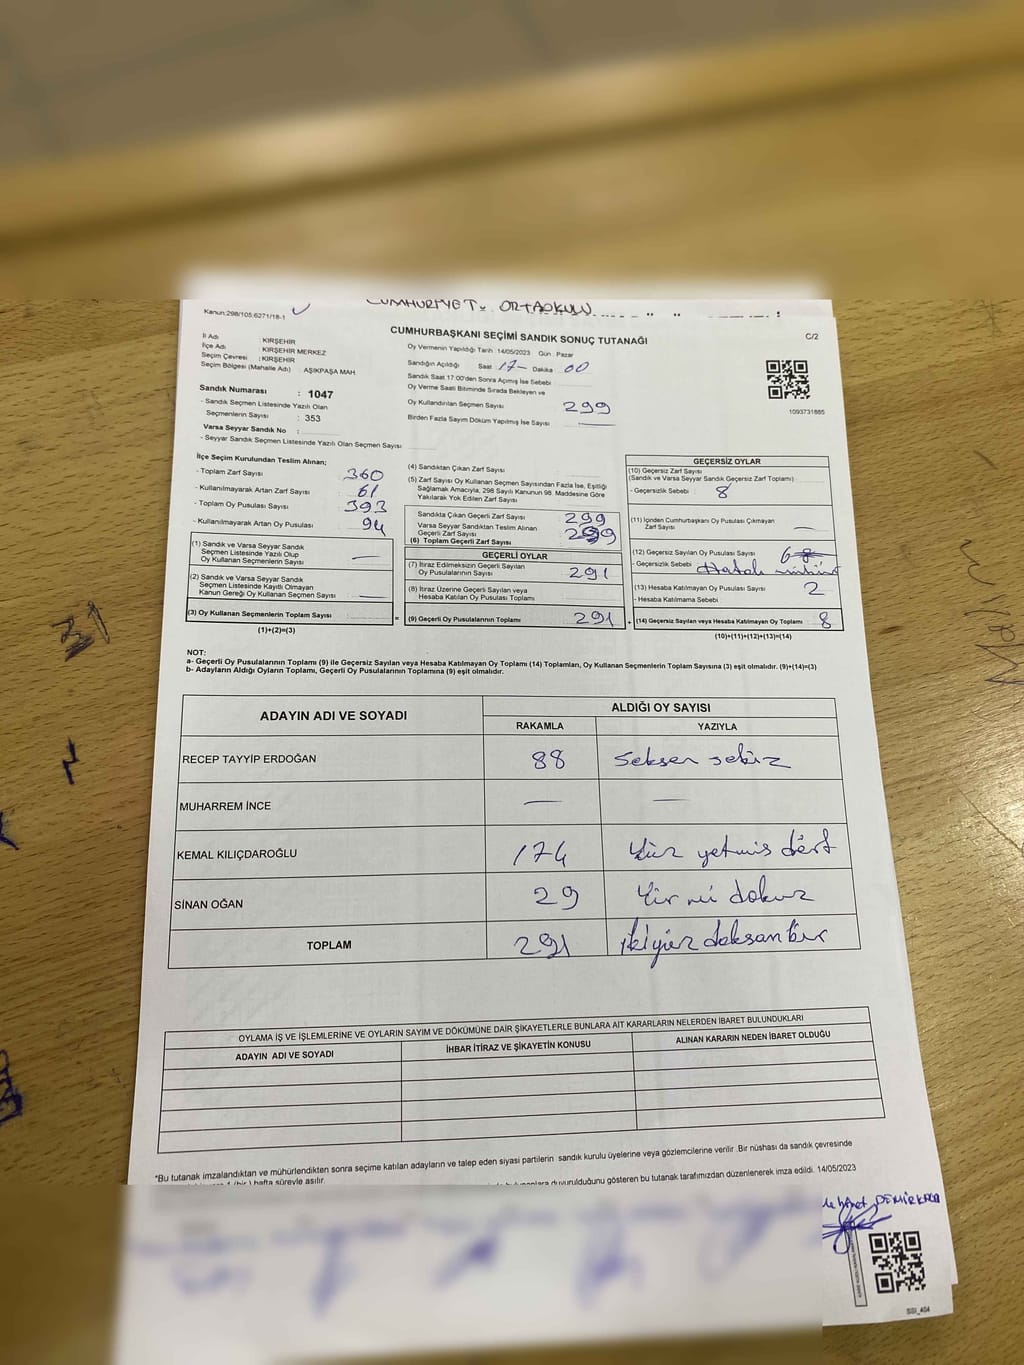 CUMHURİYET ORTAOKULU
Kanun:298/105:6271/18-1
CUMHURBAŞKANI SEÇİMİ SANDIK SONUÇ TUTANAĞI
C/2
İl Adı : KIRŞEHİR
İlçe Adı : KIRŞEHİR MERKEZ
Seçim Çevresi : KIRŞEHİR
Seçim Bölgesi (Mahalle Adı) : AŞIKPAŞA MAH
Sandık Numarası : 1047
- Sandık Seçmen Listesinde Yazılı Olan
Seçmenlerin Sayısı : 353
Varsa Seyyar Sandık No :
- Seyyar Sandık Seçmen Listesinde Yazılı Olan Seçmen Sayısı
Oy Vermenin Yapıldığı Tarih :14/05/2023 Gün : Pazar
Sandığın Açıldığı Saat 17- Dakika 00
Sandık Saat 17:00'den Sonra Açımış İse Sebebi
Oy Verme Saati Bitiminde Sırada Bekleyen ve
Oy Kullandırılan Seçmen Sayısı 299
Birden Fazla Sayım Döküm Yapılmış İse Sayısı —
1093731885
İlçe Seçim Kurulundan Teslim Alınan;
- Toplam Zarf Sayısı 360
- Kullanılmayarak Artan Zarf Sayısı 61
- Toplam Oy Pusulası Sayısı 393
- Kullanılmayarak Artan Oy Pusulası 94
(1) Sandık ve Varsa Seyyar Sandık
Seçmen Listesinde Yazılı Olup
Oy Kullanan Seçmenlerin Sayısı —
(2) Sandık ve Varsa Seyyar Sandık
Seçmen Listesinde Kayıtlı Olmayan
Kanun Gereği Oy Kullanan Seçmen Sayısı —
(3) Oy Kullanan Seçmenlerin Toplam Sayısı =
(1)+(2)=(3)
(4) Sandıktan Çıkan Zarf Sayısı
(5) Zarf Sayısı Oy Kullanan Seçmen Sayısından Fazla İse, Eşitliği
Sağlamak Amacıyla, 298 Sayılı Kanunun 98. Maddesine Göre
Yakılarak Yok Edilen Zarf Sayısı
Sandıkta Çıkan Geçerli Zarf Sayısı 299
Varsa Seyyar Sandıktan Teslim Alınan
Geçerli Zarf Sayısı
(6) Toplam Geçerli Zarf Sayısı 299
GEÇERLİ OYLAR
(7) İtiraz Edilmeksizin Geçerli Sayılan
Oy Pusulalarının Sayısı 291
(8) İtiraz Üzerine Geçerli Sayılan veya
Hesaba Katılan Oy Pusulası Toplamı
(9) Geçerli Oy Pusulalarının Toplamı 291 +
GEÇERSİZ OYLAR
(10) Geçersiz Zarf Sayısı
(Sandık ve Varsa Seyyar Sandık Geçersiz Zarf Toplamı)
- Geçersizlik Sebebi 8
(11) İçinden Cumhurbaşkanı Oy Pusulası Çıkmayan
Zarf Sayısı —
(12) Geçersiz Sayılan Oy Pusulası Sayısı 6 8
- Geçersizlik Sebebi Hatalı mühür
(13) Hesaba Katılmayan Oy Pusulası Sayısı 2
- Hesaba Katılmama Sebebi
(14) Geçersiz Sayılan veya Hesaba Katılmayan Oy Toplamı 8
(10)+(11)+(12)+(13)=(14)
NOT:
a- Geçerli Oy Pusulalarının Toplamı (9) ile Geçersiz Sayılan veya Hesaba Katılmayan Oy Toplamı (14) Toplamları, Oy Kullanan Seçmenlerin Toplam Sayısına (3) eşit olmalıdır. (9)+(14)=(3)
b- Adayların Aldığı Oyların Toplamı, Geçerli Oy Pusulalarının Toplamına (9) eşit olmalıdır.
ADAYIN ADI VE SOYADI ALDIĞI OY SAYISI
RAKAMLA YAZIYLA
RECEP TAYYİP ERDOĞAN 88 Seksen sekiz
MUHARREM İNCE — —
KEMAL KILIÇDAROĞLU 174 Yüz yetmiş dört
SİNAN OĞAN 29 Yirmi dokuz
TOPLAM 291 ikiyüz doksan bir
OYLAMA İŞ VE İŞLEMLERİNE VE OYLARIN SAYIM VE DÖKÜMÜNE DAİR ŞİKAYETLERLE BUNLARA AİT KARARLARIN NELERDEN İBARET BULUNDUKLARI
ADAYIN ADI VE SOYADI İHBAR İTİRAZ VE ŞİKAYETİN KONUSU ALINAN KARARIN NEDEN İBARET OLDUĞU
*Bu tutanak imzalandıktan ve mühürlendikten sonra seçime katılan adayların ve talep eden siyasi partilerin sandık kurulu üyelerine veya gözlemcilerine verilir. Bir nüshası da sandık çevresinde
1 (bir) hafta süreyle asılır.
duyurulduğunu gösteren bu tutanak tarafımızdan düzenlenerek imza edildi. 14/05/2023
Mehmet DEMİRKAYA
31
SSI_404